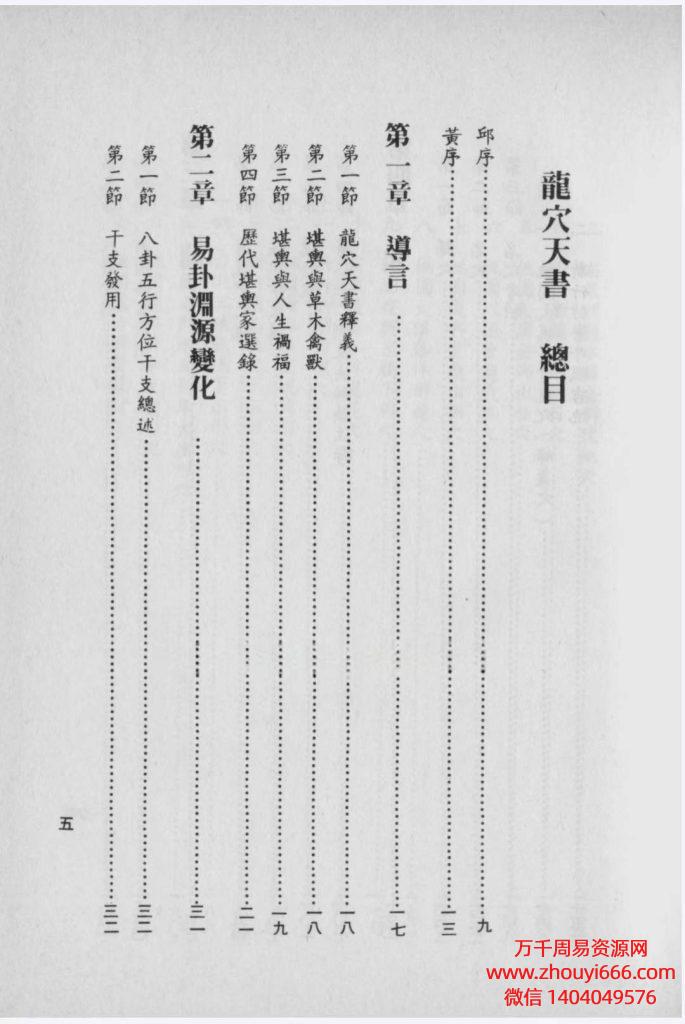 龍穴天書 總目
邱序……九
黃序……一三
第一章 導言……一七
第一節 龍穴天書釋義……一八
第二節 堪輿與草木禽獸……一八
第三節 堪輿與人生禍福……一九
第四節 歷代堪輿家選錄……二一
第二章 易卦淵源變化……三一
第一節 八卦五行方位干支總述……三二
第二節 干支發用……三二
五
万千周易资源网
www.zhouyi666.com
微信 1404049576